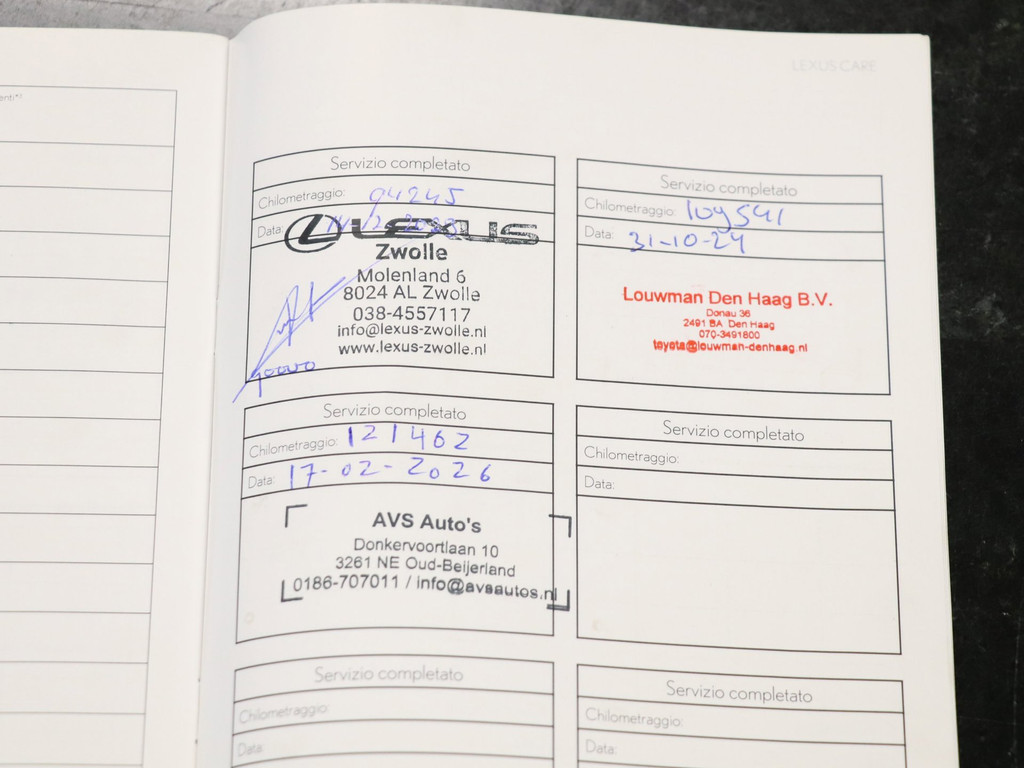 LEXUS CARE
Servizio completato
Chilometraggio: 94245
Data:
LEXUS
Zwolle
Molenland 6
8024 AL Zwolle
038-4557117
info@lexus-zwolle.nl
www.lexus-zwolle.nl
Servizio completato
Chilometraggio: 109541
Data: 31-10-24
Louwman Den Haag B.V.
Donau 36
2491 BA Den Haag
070-3491800
toyota@louwman-denhaag.nl
Servizio completato
Chilometraggio: 121462
Data: 17-02-2026
AVS Auto's
Donkervoortlaan 10
3261 NE Oud-Beijerland
0186-707011 / info@avsautos.nl
Servizio completato
Chilometraggio:
Data:
Servizio completato
Chilometraggio:
Data:
Servizio completato
Chilometraggio:
Data: